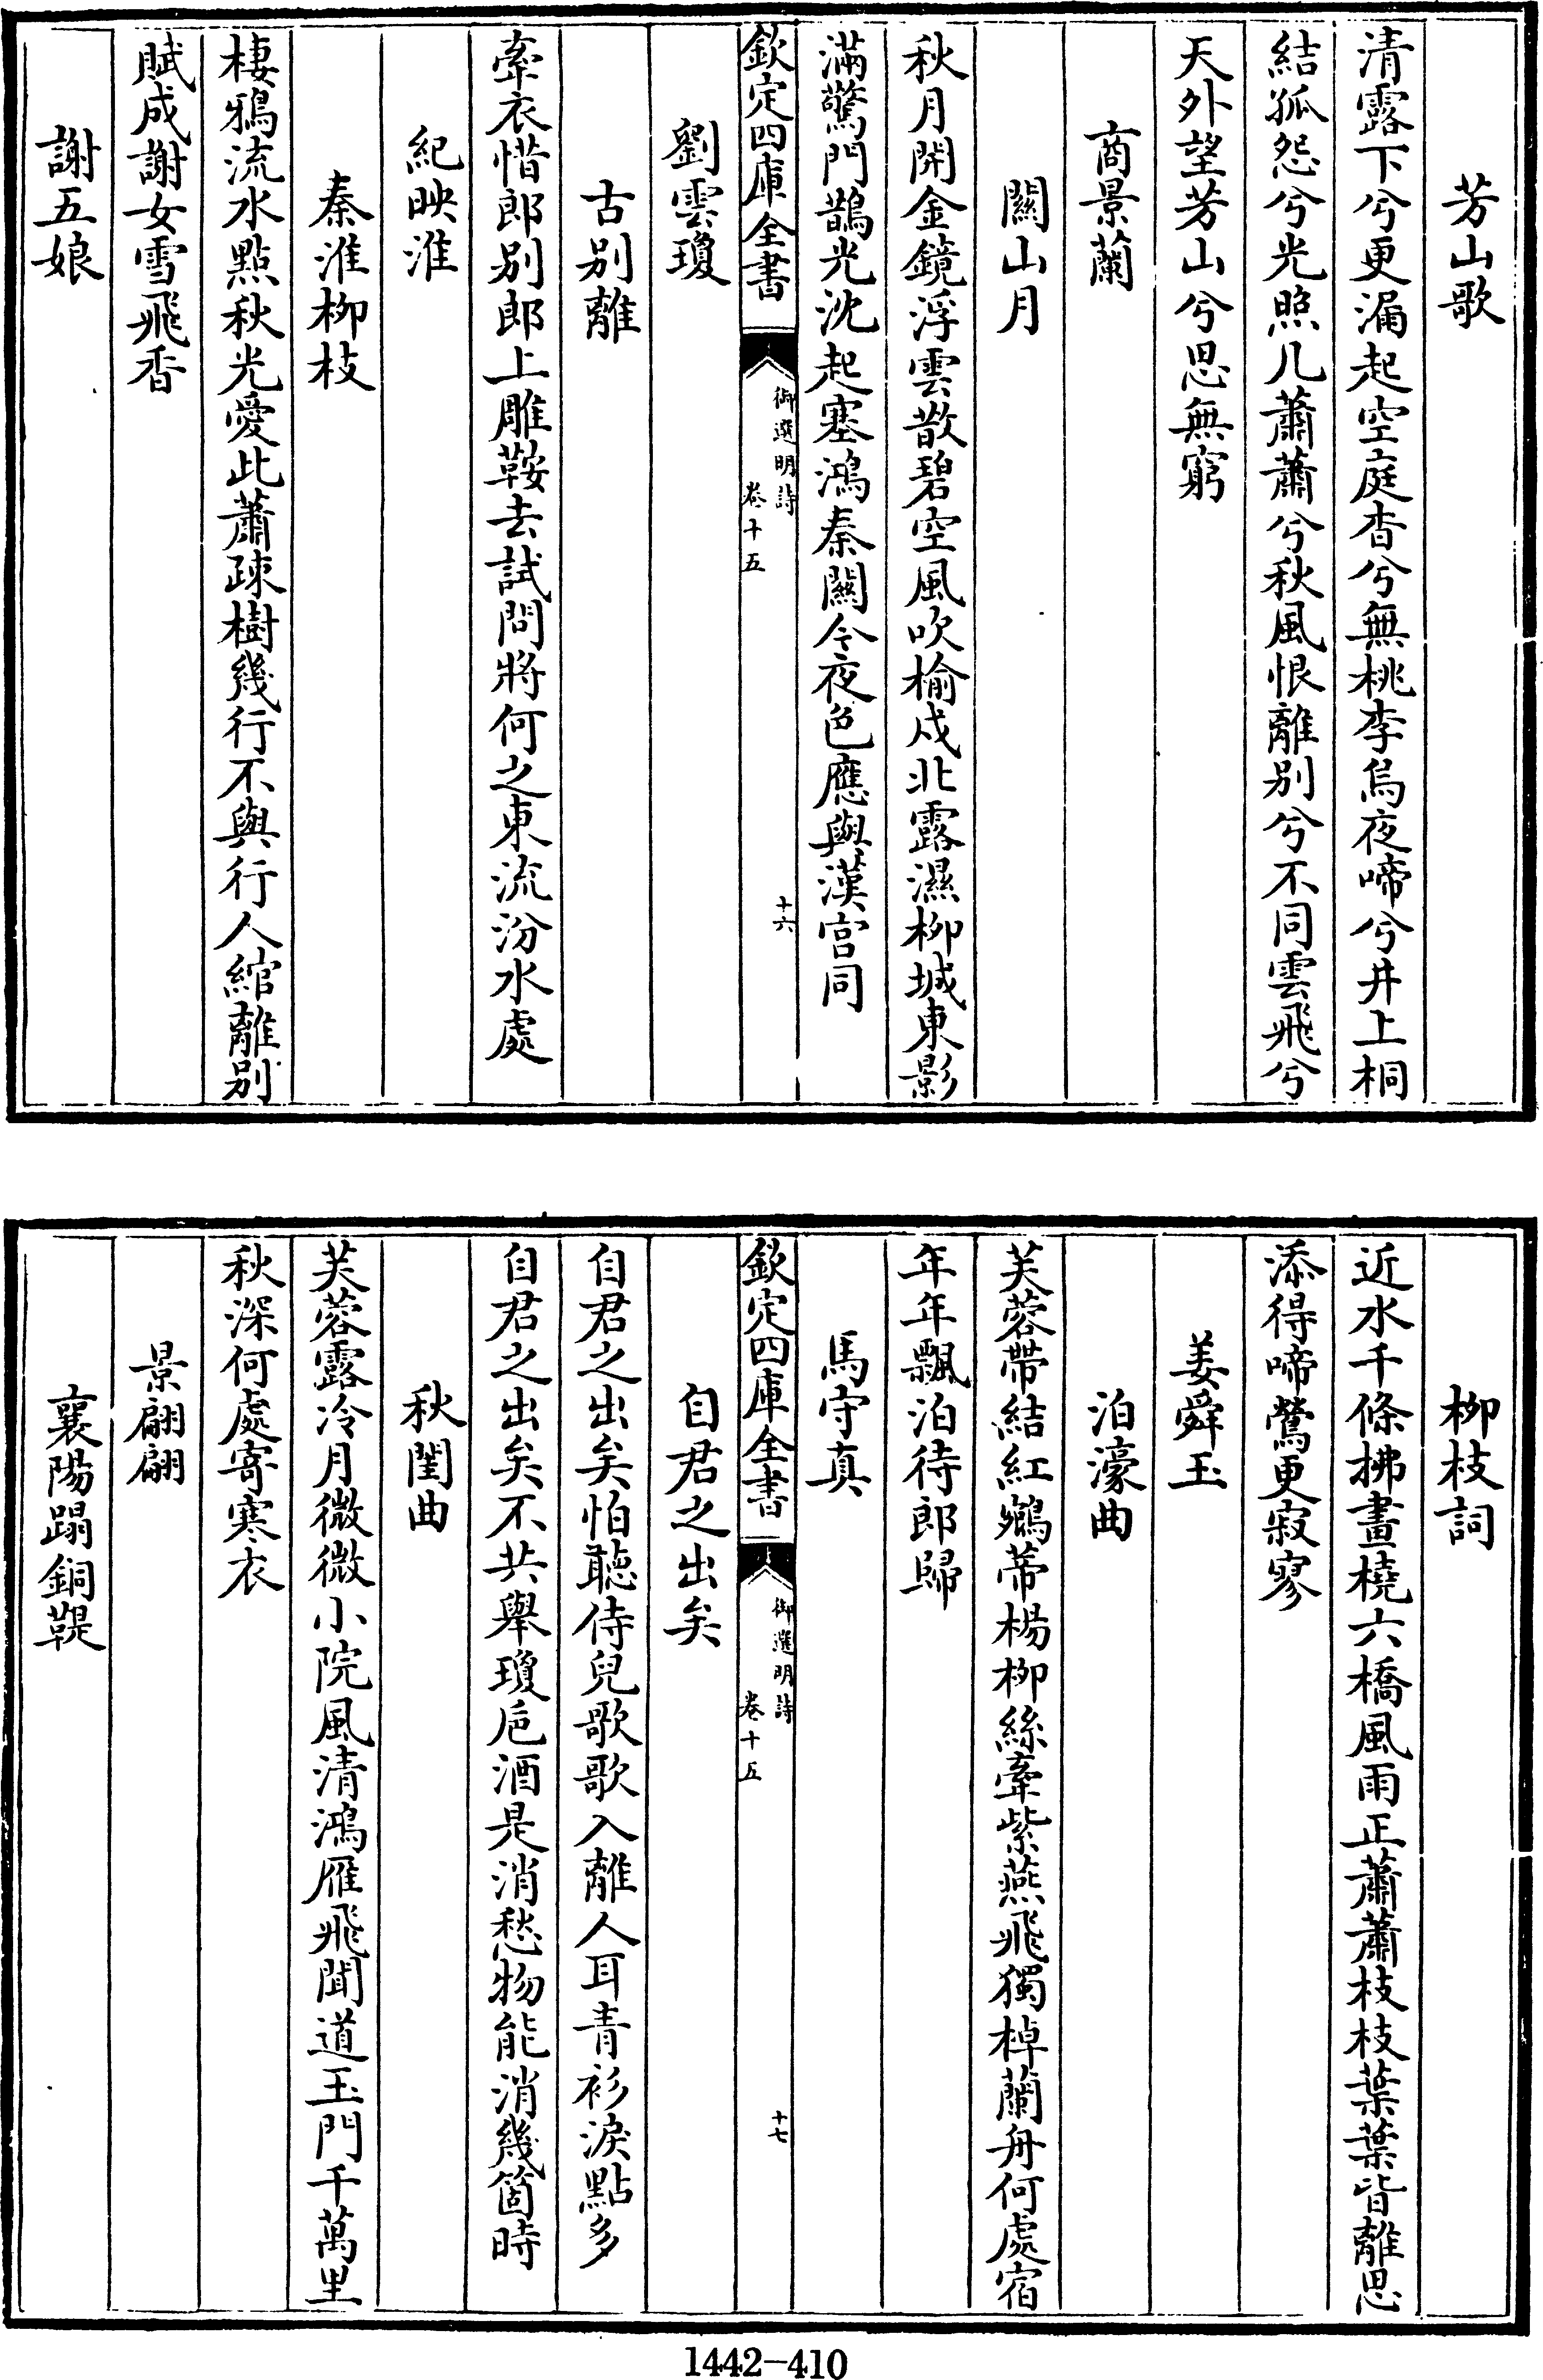 芳山歌
清露下兮更漏起空庭杳兮無桃李烏夜啼兮井上桐
結孤怨兮光照几蕭蕭兮秋風恨離別兮不同雲飛兮
天外望芳山兮思無窮
商景蘭
關山月
秋月開金鏡浮雲散碧空風吹榆戍北露濕柳城東影
滿驚門鵲光沈起塞鴻秦關今夜色應與漢宮同
欽定四庫全書
御選明詩
卷十五
十六
劉雲瓊
古別離
牽衣惜郎別郎上雕鞍去試問將何之東流汾水處
紀映淮
秦淮柳枝
棲鴉流水點秋光愛此蕭疎樹幾行不與行人綰離別
賦成謝女雪飛香
謝五娘
柳枝詞
近水千條拂畫橈六橋風雨正蕭蕭枝枝葉葉皆離思
添得啼鶯更寂寥
姜舜玉
泊濠曲
芙蓉帶結紅鵷蒂楊柳絲牽紫燕飛獨棹蘭舟何處宿
年年飄泊待郎歸
馬守真
欽定四庫全書
御選明詩
卷十五
十七
自君之出矣
自君之出矣怕聽侍兒歌歌入離人耳青衫淚點多
自君之出矣不共舉瓊卮酒是消愁物能消幾箇時
秋閨曲
芙蓉露冷月微微小院風清鴻雁飛聞道玉門千萬里
秋深何處寄寒衣
景翩翩
襄陽蹋銅鞮
1442—410